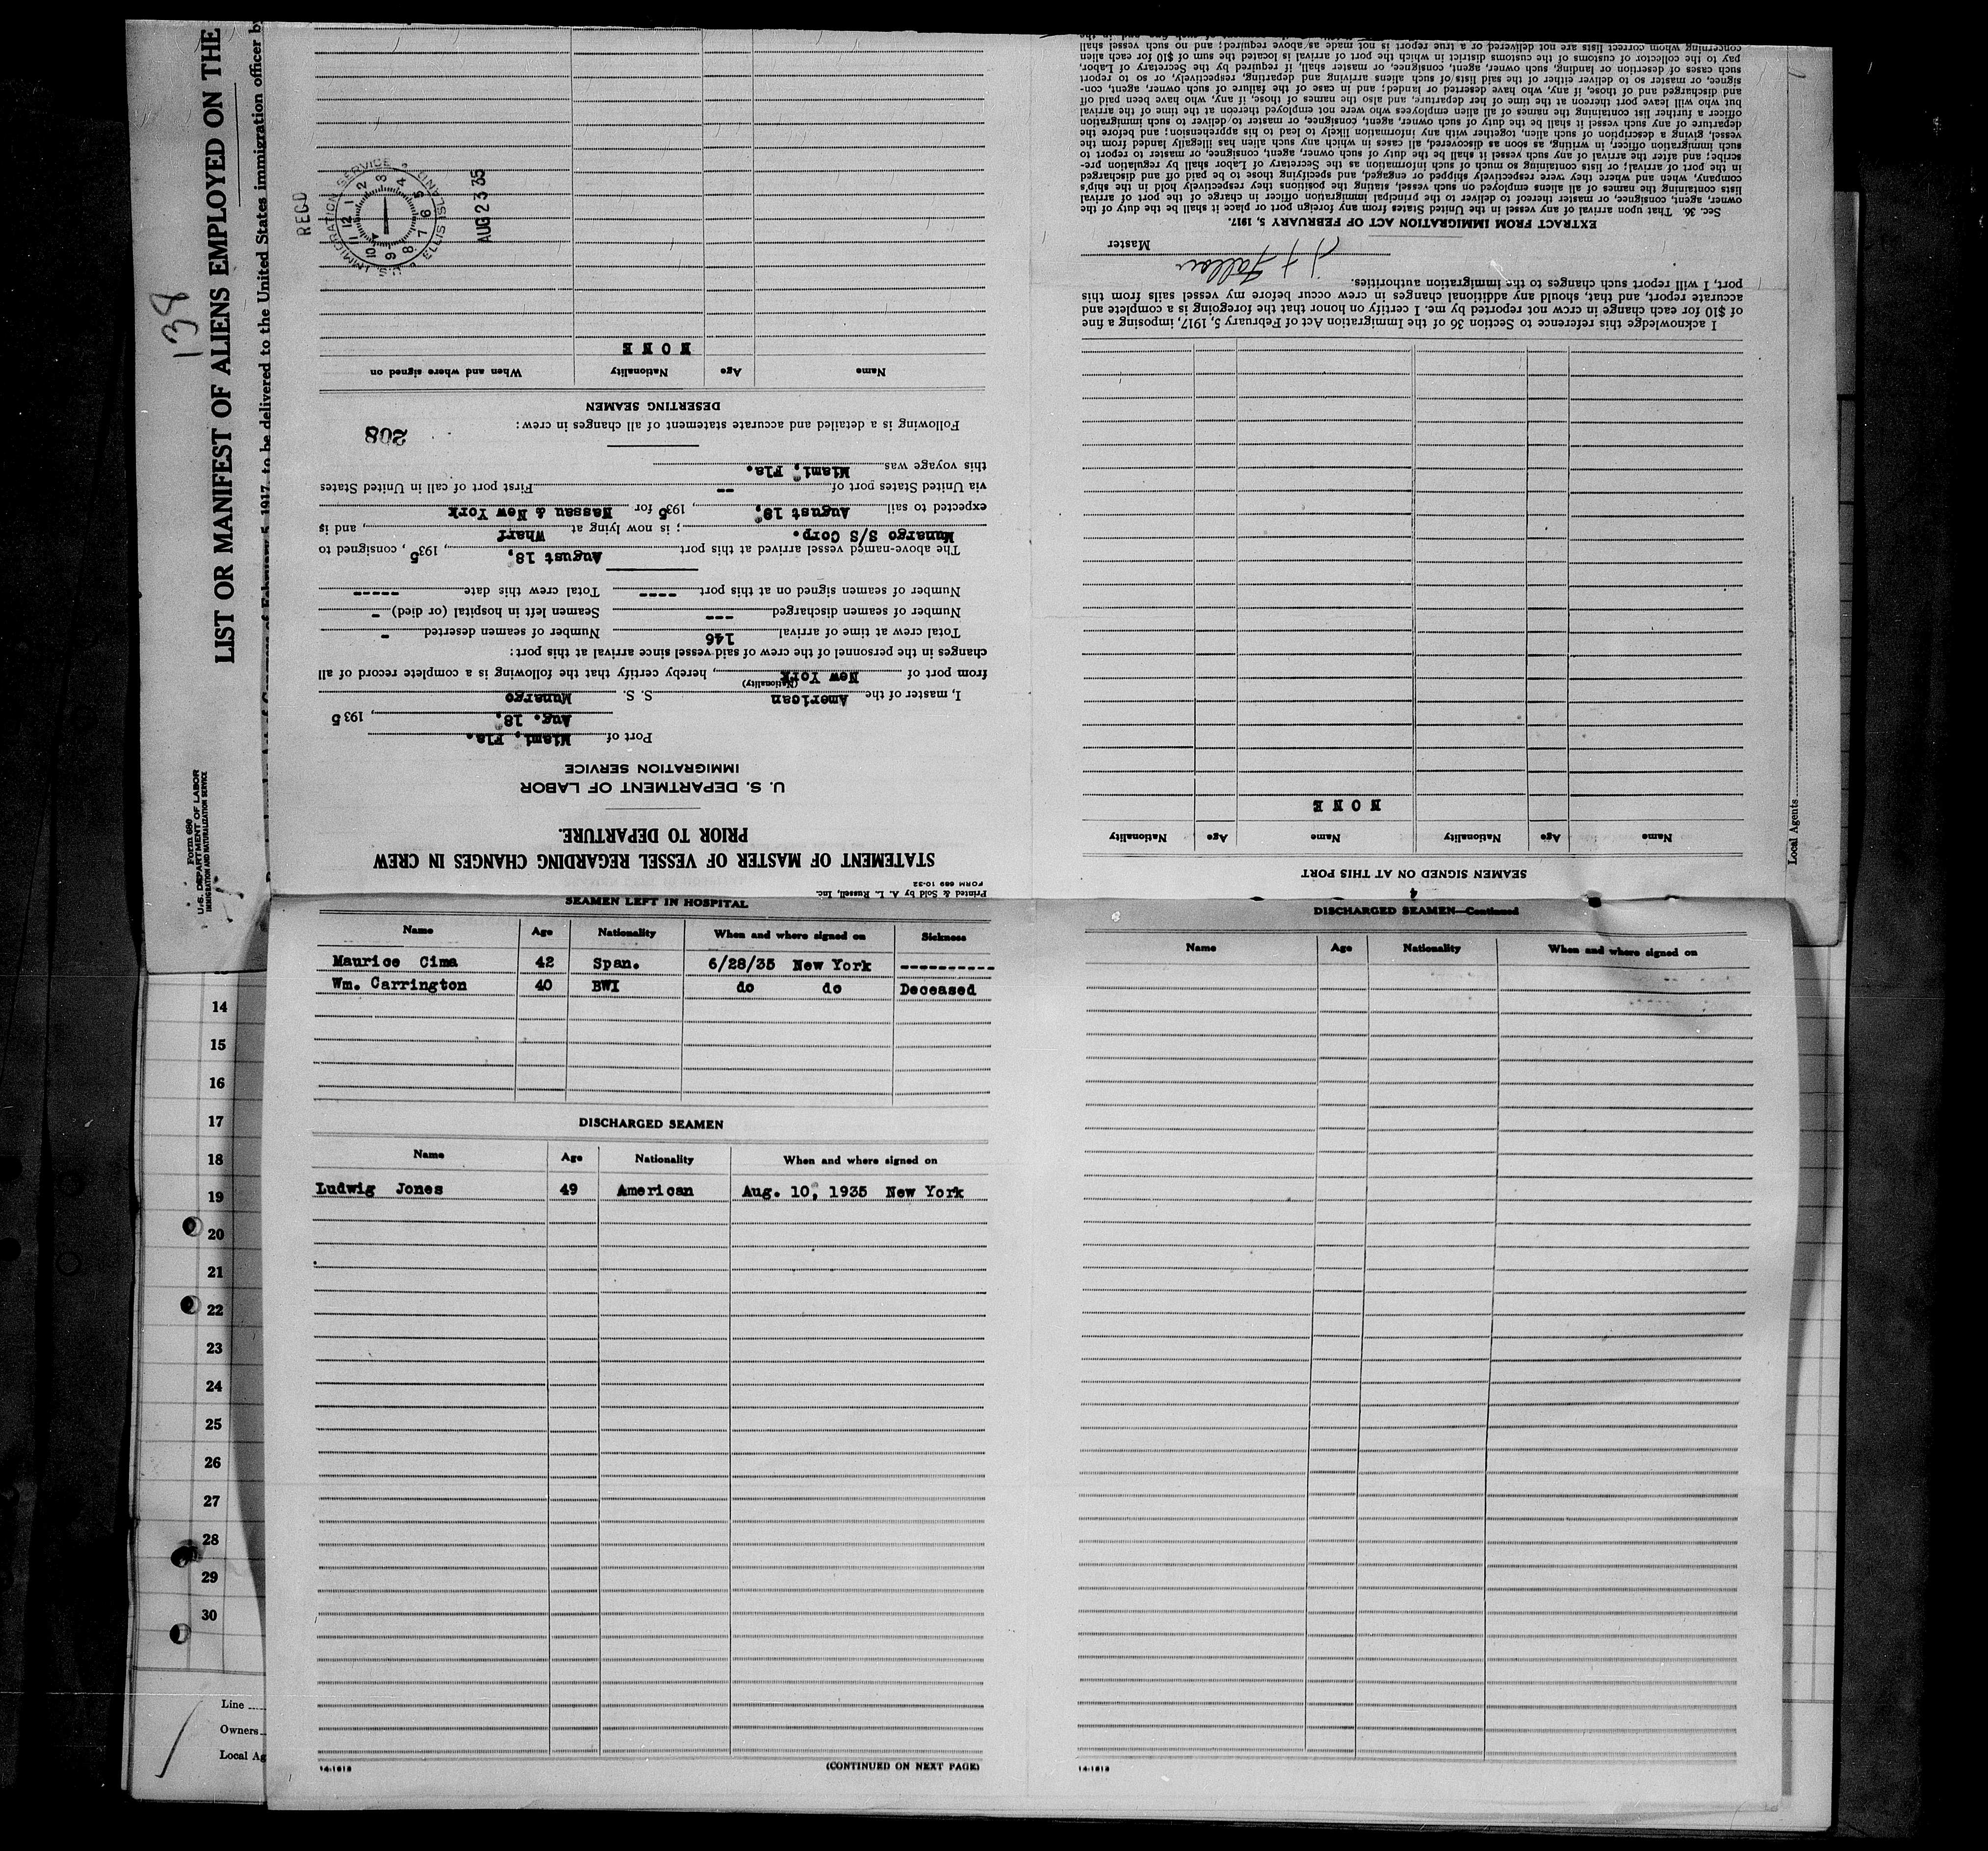 LIST OR MANIFEST OF ALIENS EMPLOYED ON THE
138
to be delivered to the United States immigration officer
Form 680
U.S. DEPARTMENT OF LABOR
IMMIGRATION AND NATURALIZATION SERVICE
Printed & Sold by A. L. Russell, Inc.
FORM 689 10-32
STATEMENT OF MASTER OF VESSEL REGARDING CHANGES IN CREW
PRIOR TO DEPARTURE.
U. S. DEPARTMENT OF LABOR
IMMIGRATION SERVICE
Port of Miami, Fla.
Aug. 18, , 1935
I, master of the American S. S. Munargo
(Nationality)
from port of New York , hereby certify that the following is a complete record of all
changes in the personnel of the crew of said vessel since arrival at this port:
Total crew at time of arrival 146 Number of seamen deserted -
Number of seamen discharged --- Seamen left in hospital (or died) -
Number of seamen signed on at this port ---- Total crew this date -----
The above-named vessel arrived at this port August 18, , 1935 , consigned to
Munargo S/S Corp. ; is now lying at Wharf , and is
expected to sail August 18, , 1935 for Nassau & New York
via United States port of -- First port of call in United States
this voyage was Miami, Fla.
Following is a detailed and accurate statement of all changes in crew:
208
DESERTING SEAMEN
Name Age Nationality When and where signed on
NONE
REC'D
U.S. IMMIGRATION SERVICE ELLIS ISLAND
1 2 3 4 5 6 7 8 9 10 11 12
AUG 23 35
SEAMEN SIGNED ON AT THIS PORT
Name Age Nationality Name Age Nationality
NONE
I acknowledge this reference to Section 36 of the Immigration Act of February 5, 1917, imposing a fine
of $10 for each change in crew not reported by me. I certify on honor that the foregoing is a complete and
accurate report, and that, should any additional changes in crew occur before my vessel sails from this
port, I will report such changes to the immigration authorities.
Master
EXTRACT FROM IMMIGRATION ACT OF FEBRUARY 5, 1917.
Sec. 36. That upon arrival of any vessel in the United States from any foreign port or place it shall be the duty of the
owner, agent, consignee, or master thereof to deliver to the principal immigration officer in charge of the port of arrival
lists containing the names of all aliens employed on such vessel, stating the positions they respectively hold in the ship's
company, when and where they were respectively shipped or engaged, and specifying those to be paid off and discharged
in the port of arrival; or lists containing so much of such information as the Secretary of Labor shall by regulation pre-
scribe; and after the arrival of any such vessel it shall be the duty of such owner, agent, consignee, or master to report to
such immigration officer, in writing, as soon as discovered, all cases in which any such alien has illegally landed from the
vessel, giving a description of such alien, together with any information likely to lead to his apprehension; and before the
departure of any such vessel it shall be the duty of such owner, agent, consignee, or master to deliver to such immigration
officer a further list containing the names of all alien employees who were not employed thereon at the time of the arrival
but who will leave port thereon at the time of her departure, and also the names of those, if any, who have been paid off
and discharged and of those, if any, who have deserted or landed; and in case of the failure of such owner, agent, con-
signee, or master so to deliver either of the said lists of such aliens arriving and departing, respectively, or so to report
such cases of desertion or landing, such owner, agent, consignee, or master shall, if required by the Secretary of Labor,
pay to the collector of customs of the customs district in which the port of arrival is located the sum of $10 for each alien
concerning whom correct lists are not delivered or a true report is not made as above required; and no such vessel shall
Local Agents
SEAMEN LEFT IN HOSPITAL
Name Age Nationality When and where signed on Sickness
Maurice Cima 42 Span. 6/28/35 New York ----------
Wm. Carrington 40 BWI do do Deceased
DISCHARGED SEAMEN
Name Age Nationality When and where signed on
Ludwig Jones 49 American Aug. 10, 1935 New York
(CONTINUED ON NEXT PAGE)
14-1818
4
DISCHARGED SEAMEN—Continued
Name Age Nationality When and where signed on
14-1818
14
15
16
17
18
19
20
21
22
23
24
25
26
27
28
29
30
Line
Owners
Local Ag